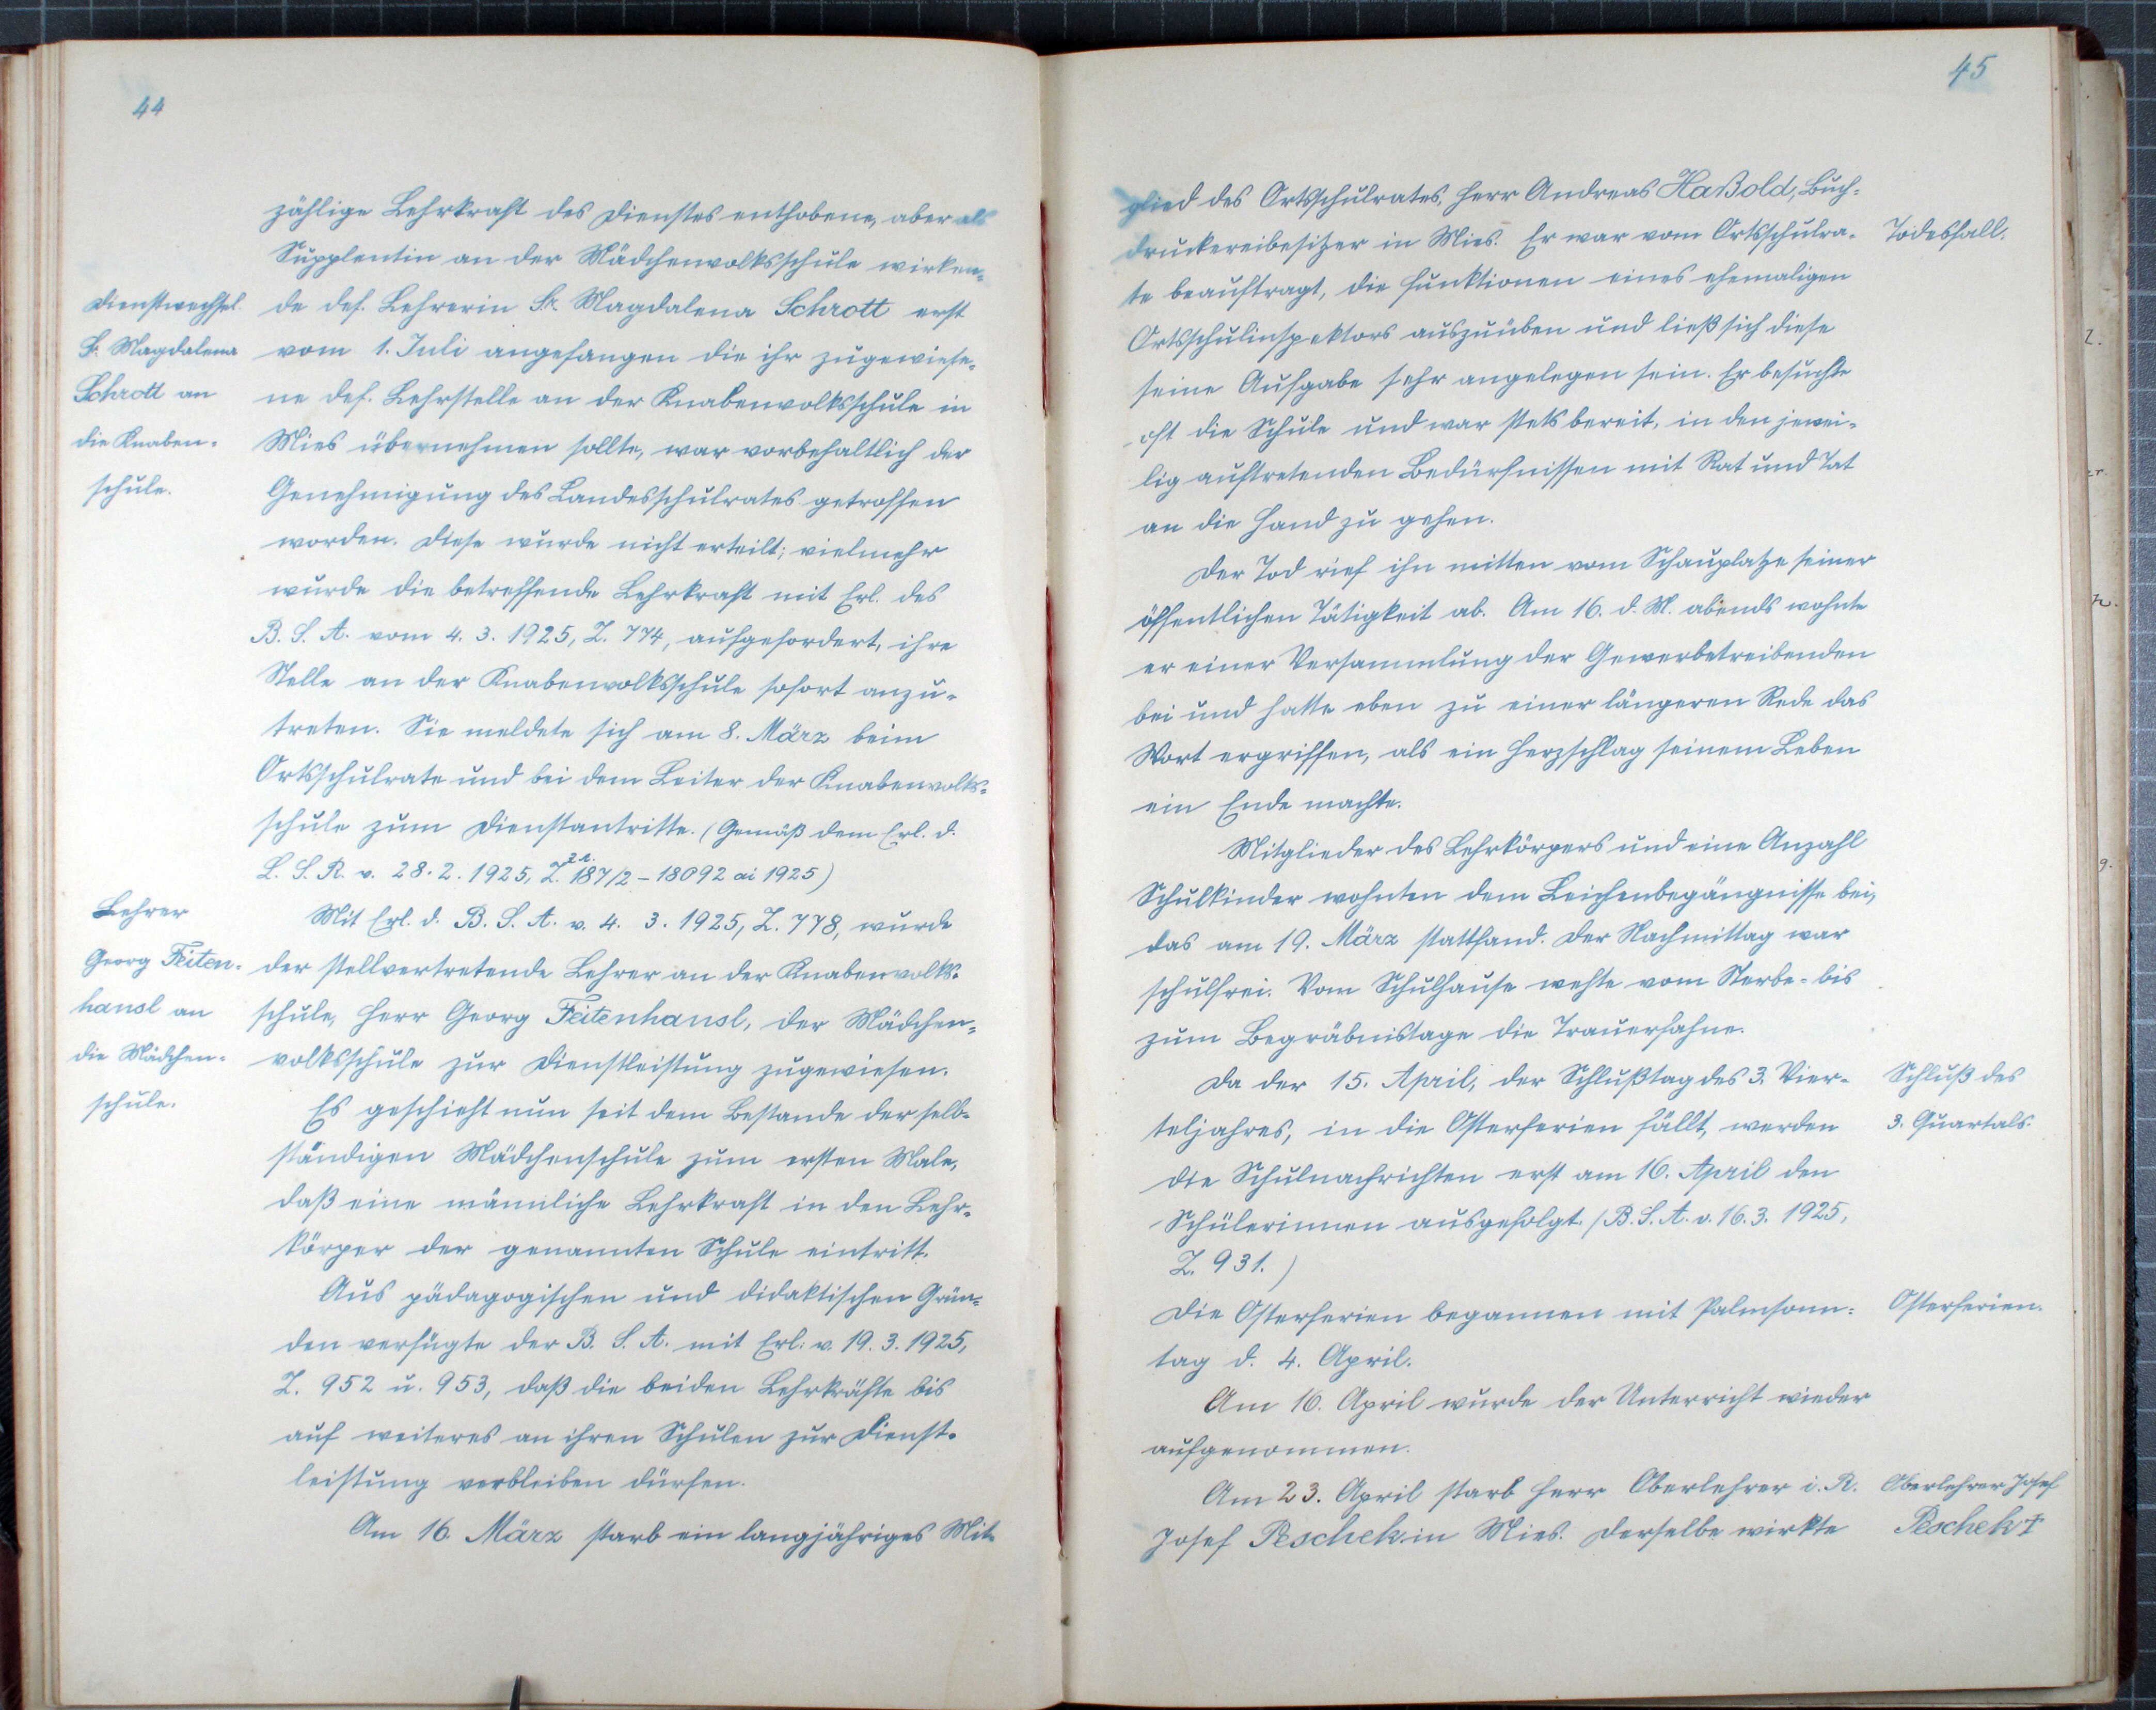 44
zählige Lehrkraft des Dienstes enthobene, aber als
Supplentin an der Mädchenvolksschule wirken-
Dienstwechsel.
de def. Lehrerin Fr. Magdalena Schrott erst
Fr. Magdalena
vom 1. Juli angefangen die ihr zugewiese-
Schrott an
ne def. Lehrstelle an der Knabenvolksschule in
die Knaben-
Mies übernehmen sollte, war vorbehaltlich der
schule.
Genehmigung des Landesschulrates getroffen
worden. Diese wurde nicht erteilt; vielmehr
wurde die betreffende Lehrkraft mit Erl. des
B. S. A. vom 4. 3. 1925, Z. 774, aufgefordert, ihre
Stelle an der Knabenvolksschule sofort anzu-
treten. Sie meldete sich am 8. März beim
Ortsschulrate und bei dem Leiter der Knabenvolks-
schule zum Dienstantritte. (Gemäß dem Erl. d.
L. S. R. v. 28. 2. 1925, Z. 187/2 - 18092 ai 1925)
Lehrer
Mit Erl. d. B. S. A. v. 4. 3. 1925, Z. 778, wurde
Georg Feiten-
der stellvertretende Lehrer an der Knabenvolks-
hansl an
schule, Herr Georg Feitenhansl, der Mädchen-
die Mädchen-
volksschule zur Dienstleistung zugewiesen.
schule.
Es geschieht nun seit dem Bestande der selb-
ständigen Mädchenschule zum ersten Male,
daß eine männliche Lehrkraft in den Lehr-
körper der genannten Schule eintritt.
Aus pädagogischen und didaktischen Grün-
den verfügte der B. S. A. mit Erl. v. 19. 3. 1925,
Z. 952 u. 953, daß die beiden Lehrkräfte bis
auf weiteres an ihren Schulen zur Dienst-
leistung verbleiben dürfen.
Am 16. März starb ein langjähriges Mit-
45
glied des Ortsschulrates, Herr Andreas Haßold, Buch-
druckereibesitzer in Mies. Er war vom Ortsschulra-
Todesfall.
te beauftragt, die Funktionen eines ehemaligen
Ortsschulinspektors auszuüben und ließ sich diese
seine Aufgabe sehr angelegen sein. Er besuchte
oft die Schule und war stets bereit, in den jewei-
lig auftretenden Bedürfnissen mit Rat und Tat
an die Hand zu gehen.
Der Tod rief ihn mitten vom Schauplatze seiner
öffentlichen Tätigkeit ab. Am 16. d. M. abends wohnte
er einer Versammlung der Gewerbetreibenden
bei und hatte eben zu einer längeren Rede das
Wort ergriffen, als ein Herzschlag seinem Leben
ein Ende machte.
Mitglieder des Lehrkörpers und eine Anzahl
Schulkinder wohnten dem Leichenbegängnisse bei,
das am 19. März stattfand. Der Nachmittag war
schulfrei. Vom Schulhause wehte vom Sterbe- bis
zum Begräbnistage die Trauerfahne.
Da der 15. April, der Schlußtag des 3. Vier-
Schluß des
teljahres, in die Osterferien fällt, werden
3. Quartals.
die Schulnachrichten erst am 16. April den
Schülerinnen ausgefolgt. (B. S. A. v. 16. 3. 1925,
Z. 931.)
Die Osterferien begannen mit Palmsonn-
Osterferien.
tag d. 4. April.
Am 16. April wurde der Unterricht wieder
aufgenommen.
Am 23. April starb Herr Oberlehrer i. R.
Oberlehrer Josef
Josef Peschek in Mies. Derselbe wirkte
Peschek †